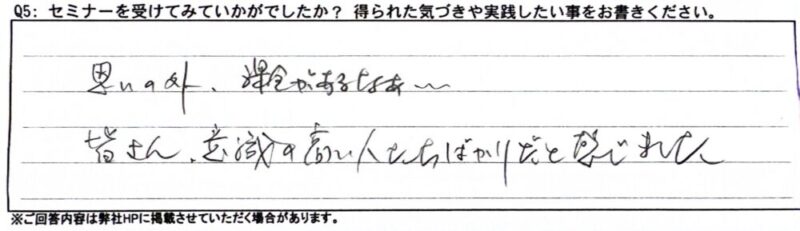 Q5: セミナーを受けてみていかがでしたか? 得られた気づきや実践したい事をお書きください。
思いの外、課金があるなあ〜
皆さん、意識の高い人たちばかりだと感じました
※ご回答内容は弊社HPに掲載させていただく場合があります。